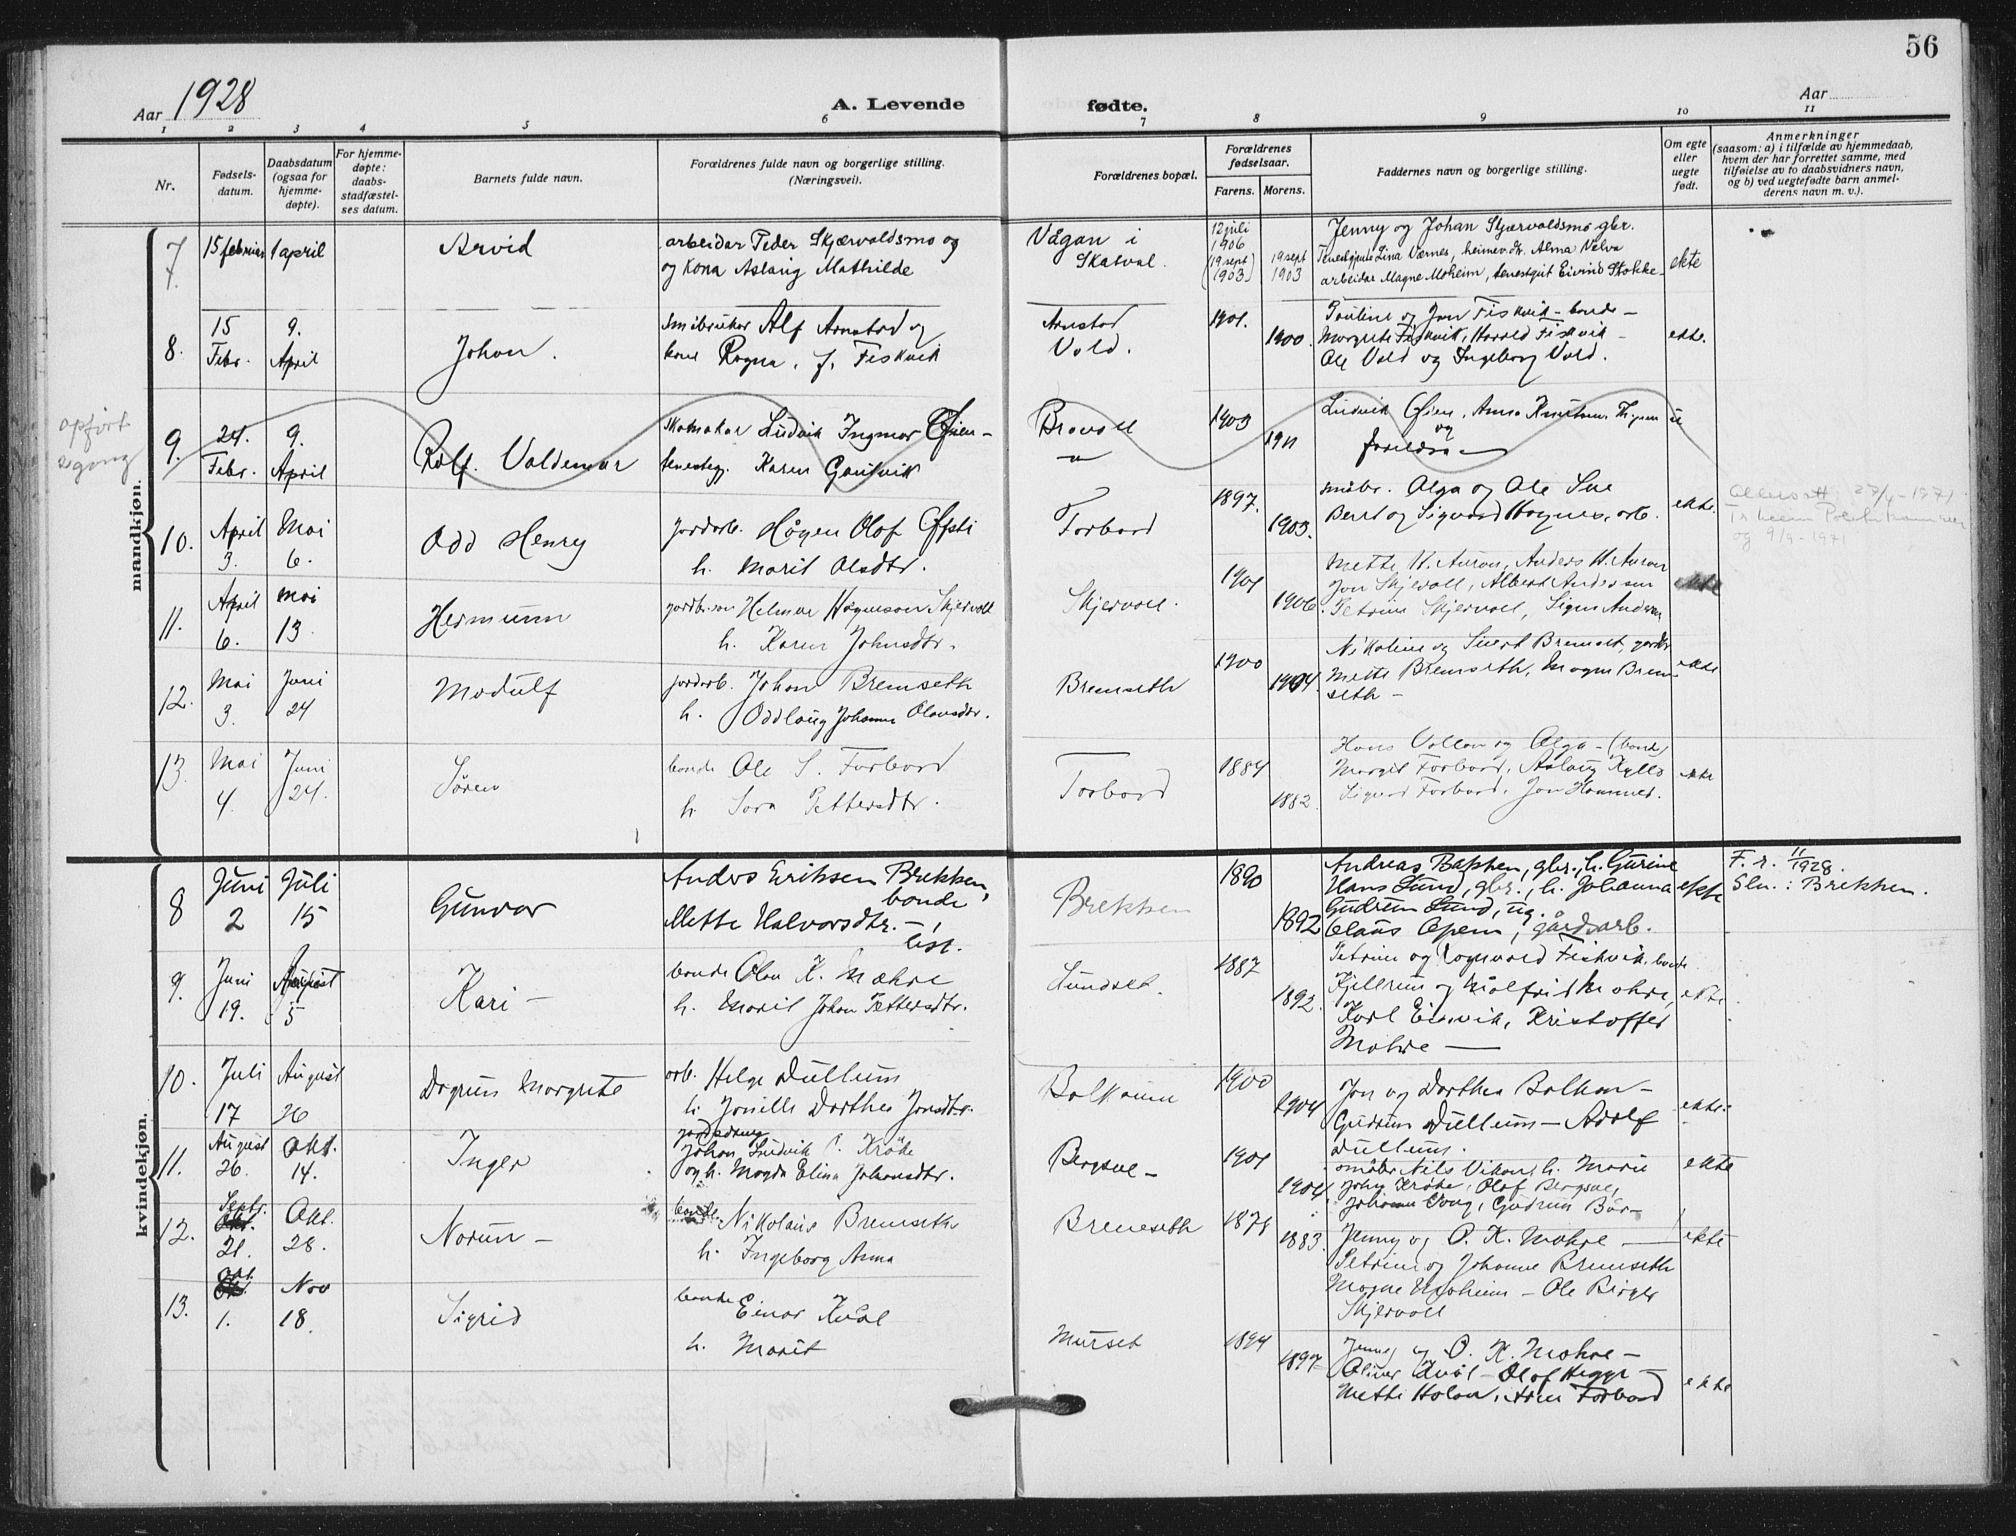 56
Aar 1928
A. Levende fødte.
Aar
1 2 3 4 5 6 7 8 9 10 11
Nr.
Fødsels-datum.
Daabsdatum (ogsaa for hjemme-døpte).
For hjemme-døpte: daabs-stadfæstel-ses datum.
Barnets fulde navn.
Forældrenes fulde navn og borgerlige stilling. (Næringsvei).
Forældrenes bopæl.
Forældrenes fødselsaar.
Farens. Morens.
Faddernes navn og borgerlige stilling.
Om egte eller uegte født.
Anmerkninger
(saasom: a) i tilfælde av hjemmedaab,
hvem der har forrettet samme, med
tilføielse av to daabsvidners navn,
og b) ved uegtefødte barn anmel-
derens navn m. v.).
mandkjøn.
7. 15 februar 1 april Arvid
arbeidar Peder Skjærvoldsmo og
og kona Aslaug Mathilde
Vågan i
Skatval.
12 juli
1906
(19 sept
1903)
19 sept
1903
Jenny og Johan Skjærvoldsmo gbr.
Lina Værnes, heimev. dt. Alma Velva
arbeidar Magne Moheim, tenestgut Eivind Stokke
ekte
8. 15 Febr. 9. April Johan.
småbruker Alf Arnstad og
kone Ragna, f. Fiskvik
Arnstad
Vold.
1901. 1900.
Pauline og Jon Fiskvik - bonde -
Margrete Fiskvik, Harald Fiskvik -
Ole Vold og Ingeborg Vold.
ekte.
opført
9. 24. Febr. 9. April Rolf. Valdemar
skomaker Ludvik Ingmar Øfsien -
tenestepg. Karen Gautvik
1903 1911
Ludvik Øien, Anna Knutsen
og
foreldra
u
10. April 3. Mai 6. Odd Henry
jordarb. Hågen Olaf Øfsti
h. Marit Olsdtr.
Forbord
1897. 1903.
småbr. Olga og Ole Sve
Beret og Sigvard Hognes, arb.
ekte.
27/4-1971
og 9/9-1971
11. April 6. Mai 13. Hermunn
Helmer Hågenson Skjervoll
h. Karen Johnsdtr.
Skjervoll.
1901 1906.
Mette K. Auran, Anders H. Auran
Jon Skjervoll, Albert Andersen
Petrine Skjervoll, Signe Andersen
ekte
12. Mai 3. Juni 24 Modulf
jordarb. Johan Bremseth
h. Oddlaug Johanna Olausdtr.
Bremseth
1900 1904.
Nikoline og Sivert Bremset, gardbr
Mette Bremseth, Magne Brem-
seth -
ekte
13. Mai 4. Juni 24. Søren
bonde Ole S. Forbord
h. Sara Pettersdtr.
Forbord
1884 1882.
Hans Vollan og Olga - (bonde)
Margit Forbord, Aslaug Kyllo
Sigurd Forbord, Jon Hammer.
ekte
kvindekjøn.
8 Juni 2 Juli 15 Gunvor
Anders Eriksen Brekken,
bonde
Mette Halvorsdtr. -
Brekken
1890 1892
Andreas Bakken, gbr., h. Gurine
Hans Lund, gbr., h. Johanna
Gudrun Lund, ug.
Claus Apem, gårdsarb.
ekte
F. r. 11/1928.
Sln.: Brekken.
9. Juni 19. August 5 Kari -
bonde Olav K. Mæhre
h. Marit Johan Pettersdtr.
Lundset.
1887 1892.
Petrine og Ragnvald Fiskvik, bonde
Kjellrun og Målfrid Mæhre,
Karl Eidsvik, Kristoffer
Mæhre
ekte
10. Juli 17 August 26 Dagrun Margrete
arb. Helge Dullum
h. Jonille Dorthea Jonsdtr.
Balkaunn
1900 1904
Jon og Dorthea Balkan -
Gudrun Dullum - Adolf
Dullum.
ekte.
11. August 26. Okt. 14. Inger
Johan Ludvik Kråke
og h. Magda Elina Johansdtr.
Bergsve -
1901 1904
småbr Nils Vikan, h. Marie
Johs Kråke, Olaf Bergsve,
Johanna Voug, Gudrun Bår-
ekte
12. Septr. 21. Okt. 28. Norun -
bonde Nikolaus Bremseth
h. Ingeborg Anna
Bremseth
1878 1883.
Jenny og O. K. Mæhre
Petrine og Johanne Bremseth
Magne Moheim - Ole Birger
Skjervoll
ekte
13. Okt. 1. Nov 18. Sigrid
bonde Einar Kvål
h. Marit
Murset
1894 1897
Jenny og O. K. Mæhre -
Oliver Kvål - Olaf Hegge -
Mette Holan, Arne Forbord
ekte